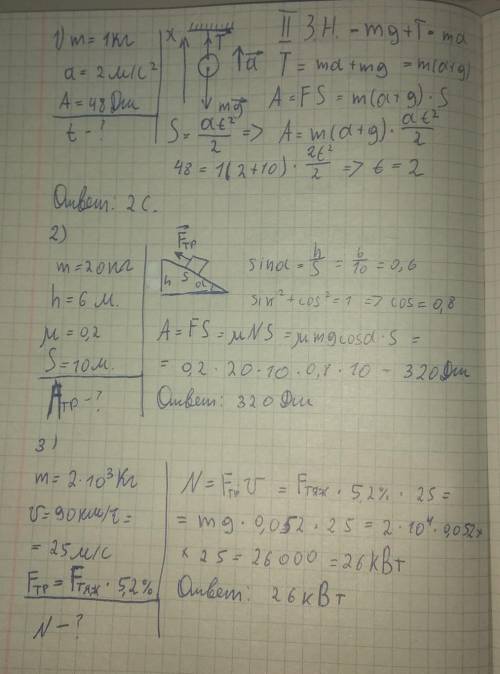 √ m = 1кг
a = 2 м/с²
A = 48 Дж
t - ?
x
T
a
mg
II З.Н. - mg + T = ma
T = ma + mg = m(a+g)
A = FS = m(a+g) · S
S = at²/2 => A = m(a+g) · at²/2
48 = 1(2+10) · 2t²/2 => t = 2
Ответ: 2 с.
2)
m = 20 кг
h = 6 м.
μ = 0,2
S = 10 м.
Aтр - ?
Fтр
h
S
α
sinα = h/S = 6/10 = 0,6
sin² + cos² = 1 => cos = 0,8
A = FS = μNS = μmgcosα · S =
= 0,2 · 20 · 10 · 0,8 · 10 = 320 Дж
Ответ: 320 Дж
3)
m = 2 · 10³ кг
v = 90 км/ч =
= 25 м/с
Fтр = Fтяж · 5,2%
N - ?
N = Fтр v = Fтяж · 5,2% · 25 =
= mg · 0,052 · 25 = 2 · 10⁴ · 0,052 ×
× 25 = 26000 = 26 кВт
Ответ: 26 кВт